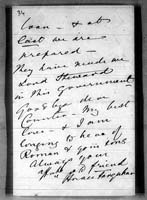 34
loan - & at
last we are
prepared -
They have made me
Lord Steward
in this Government
Goodbye dear
Countess - My best
love - & I am
longing to hear of
Roman & your sons
Always your
friend